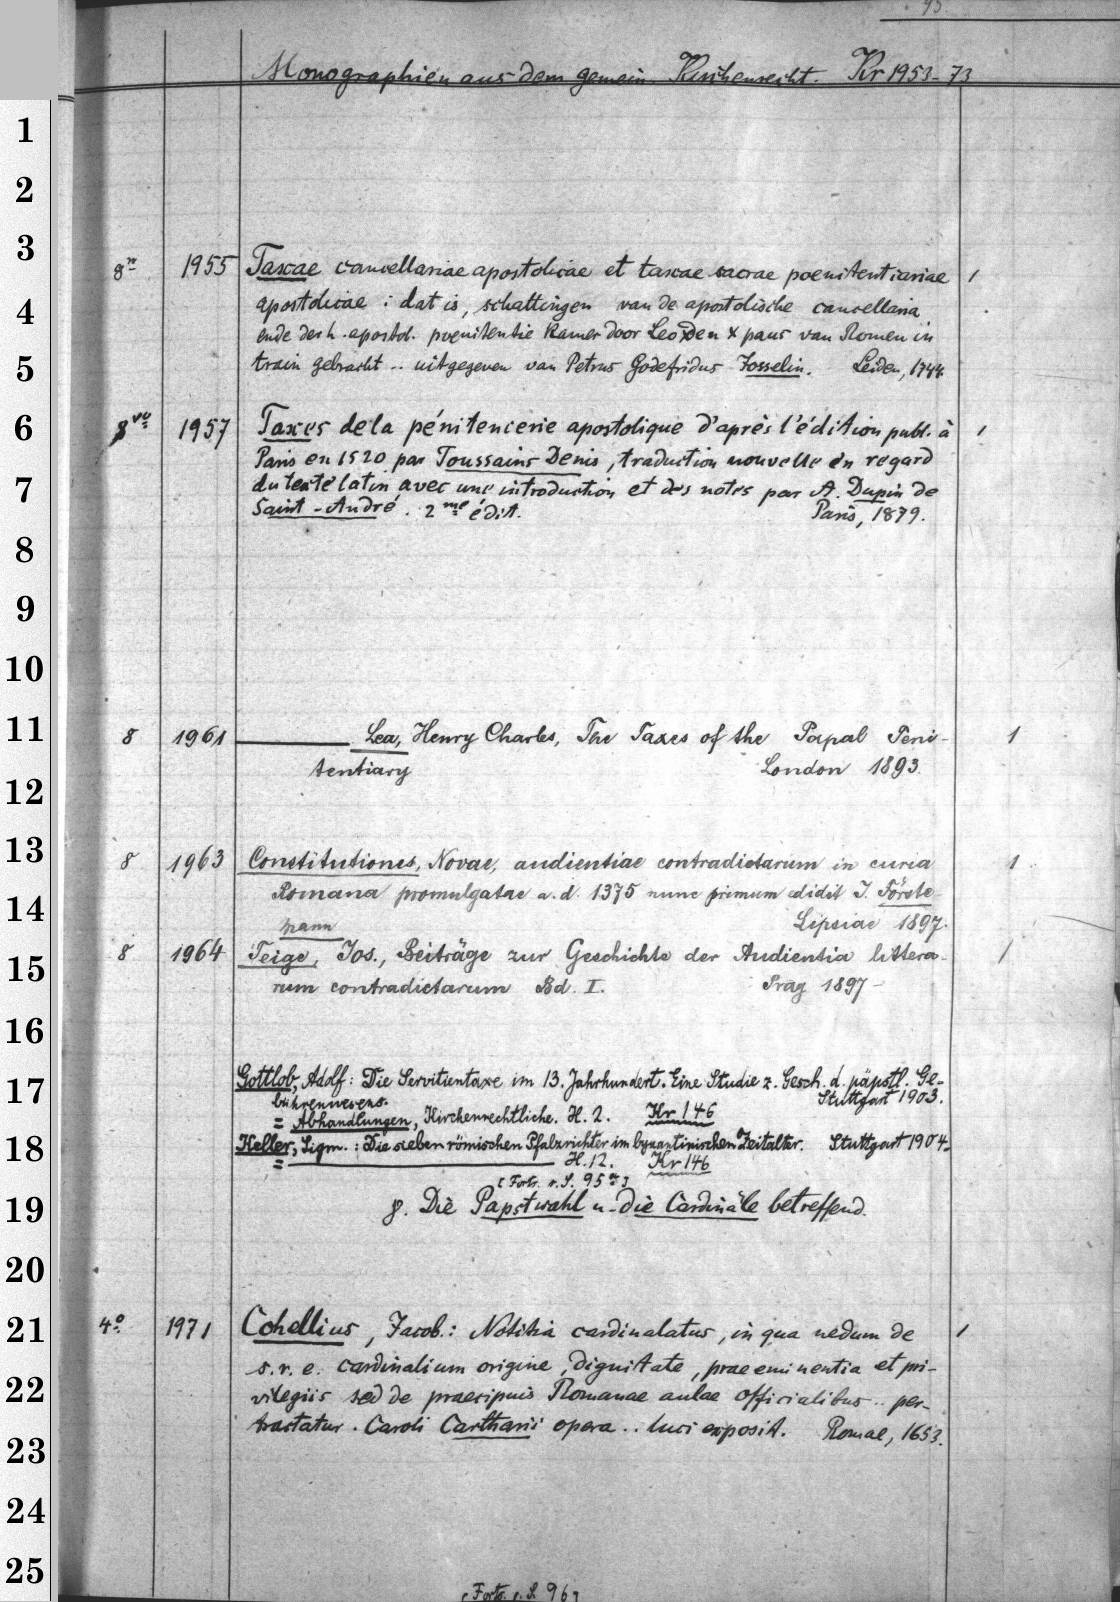 95
Monographien aus dem gemein. Kirchenrecht. Kr 1953-73
8º 1955 Taxae cancellariae apostolicae et taxae sacrae poenitentiariae 1
apostolicae : dat is, schattingen van de apostolische cancellaria
ende der h. apostol. poenitentie kamer door Leo den X paus van Romen in
train gebracht .. uitgegeven van Petrus Godefridus Josselin. Leiden, 1744
8vo 1957 Taxes de la pénitencerie apostolique d'après l'édition publ. à 1
Paris en 1520 par Toussains Denis, traduction nouvelle en regard
du texte latin avec une introduction et des notes par A. Dupin de
Saint-André. 2me édit. Paris, 1879.
8 1961 ——— Lea, Henry Charles, The Taxes of the Papal Peni- 1
tentiary London 1893.
8 1963 Constitutiones, Novae, audientiae contradictarum in curia 1
Romana promulgatae a. d. 1375 nunc primum edidit J. Förste-
mann Lipsiae 1897.
8 1964 Teige, Jos., Beiträge zur Geschichte der Audientia littera- 1
rum contradictarum Bd. I. Prag 1897-
Gottlob, Adolf: Die Servitientaxe im 13. Jahrhundert. Eine Studie z. Gesch. d. päpstl. Ge-
bührenwesens. Stuttgart 1903.
= Abhandlungen, Kirchenrechtliche. H. 2. Kr 146
Keller, Sigm.: Die sieben römischen Pfalzrichter im byzantinischen Zeitalter. Stuttgart 1904.
= ——— H. 12. Kr 146
[Forts. s. S. 95a]
8. Die Papstwahl u. die Cardinäle betreffend.
4º 1971 Cohellius, Jacob.: Notitia cardinalatus, in qua nedum de 1
s. r. e. cardinalium origine, dignitate, praeeminentia et pri-
vilegiis sed de praecipuis Romanae aulae officialibus .. per-
tractatur. Caroli Cartharii opera .. luci exposit. Romae, 1653.
[Forts. s. S. 96]
1
2
3
4
5
6
7
8
9
10
11
12
13
14
15
16
17
18
19
20
21
22
23
24
25